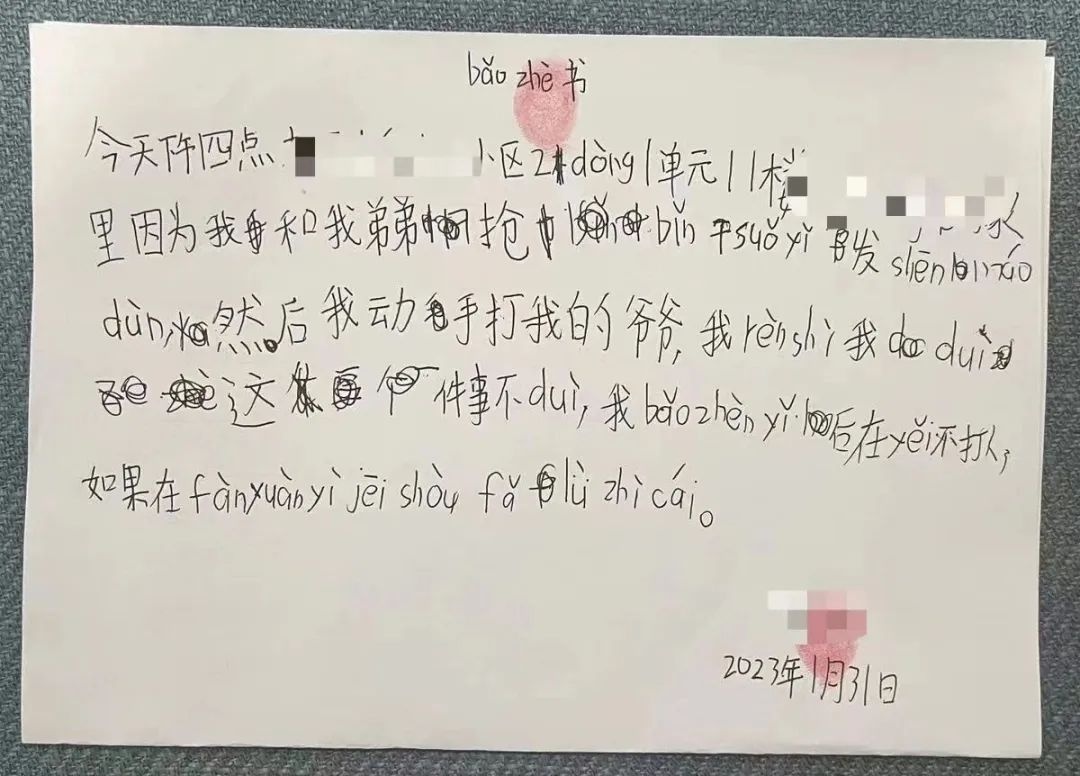 bǎo zhè书
今天下午四点 小区2 dòng1单元11楼
里因为我和我弟弟抢bǐn干suǒyǐ发shēn máo
dùn,然后我动手打我的爷爷,我rènshi我 duì
这个件事不duì,我bǎozhèn yǐ后在yěi不打人,
如果在fànyuànyì jēi shòu fǎ lǜ zhì cái。
2023年1月31日